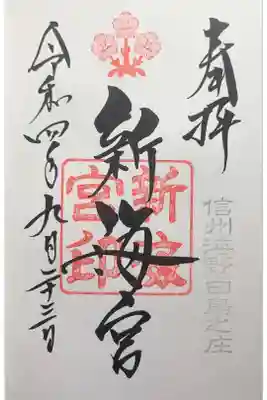 奉拝
信州 之庄
新海宮
新海宮印
令和四年九月二十三日